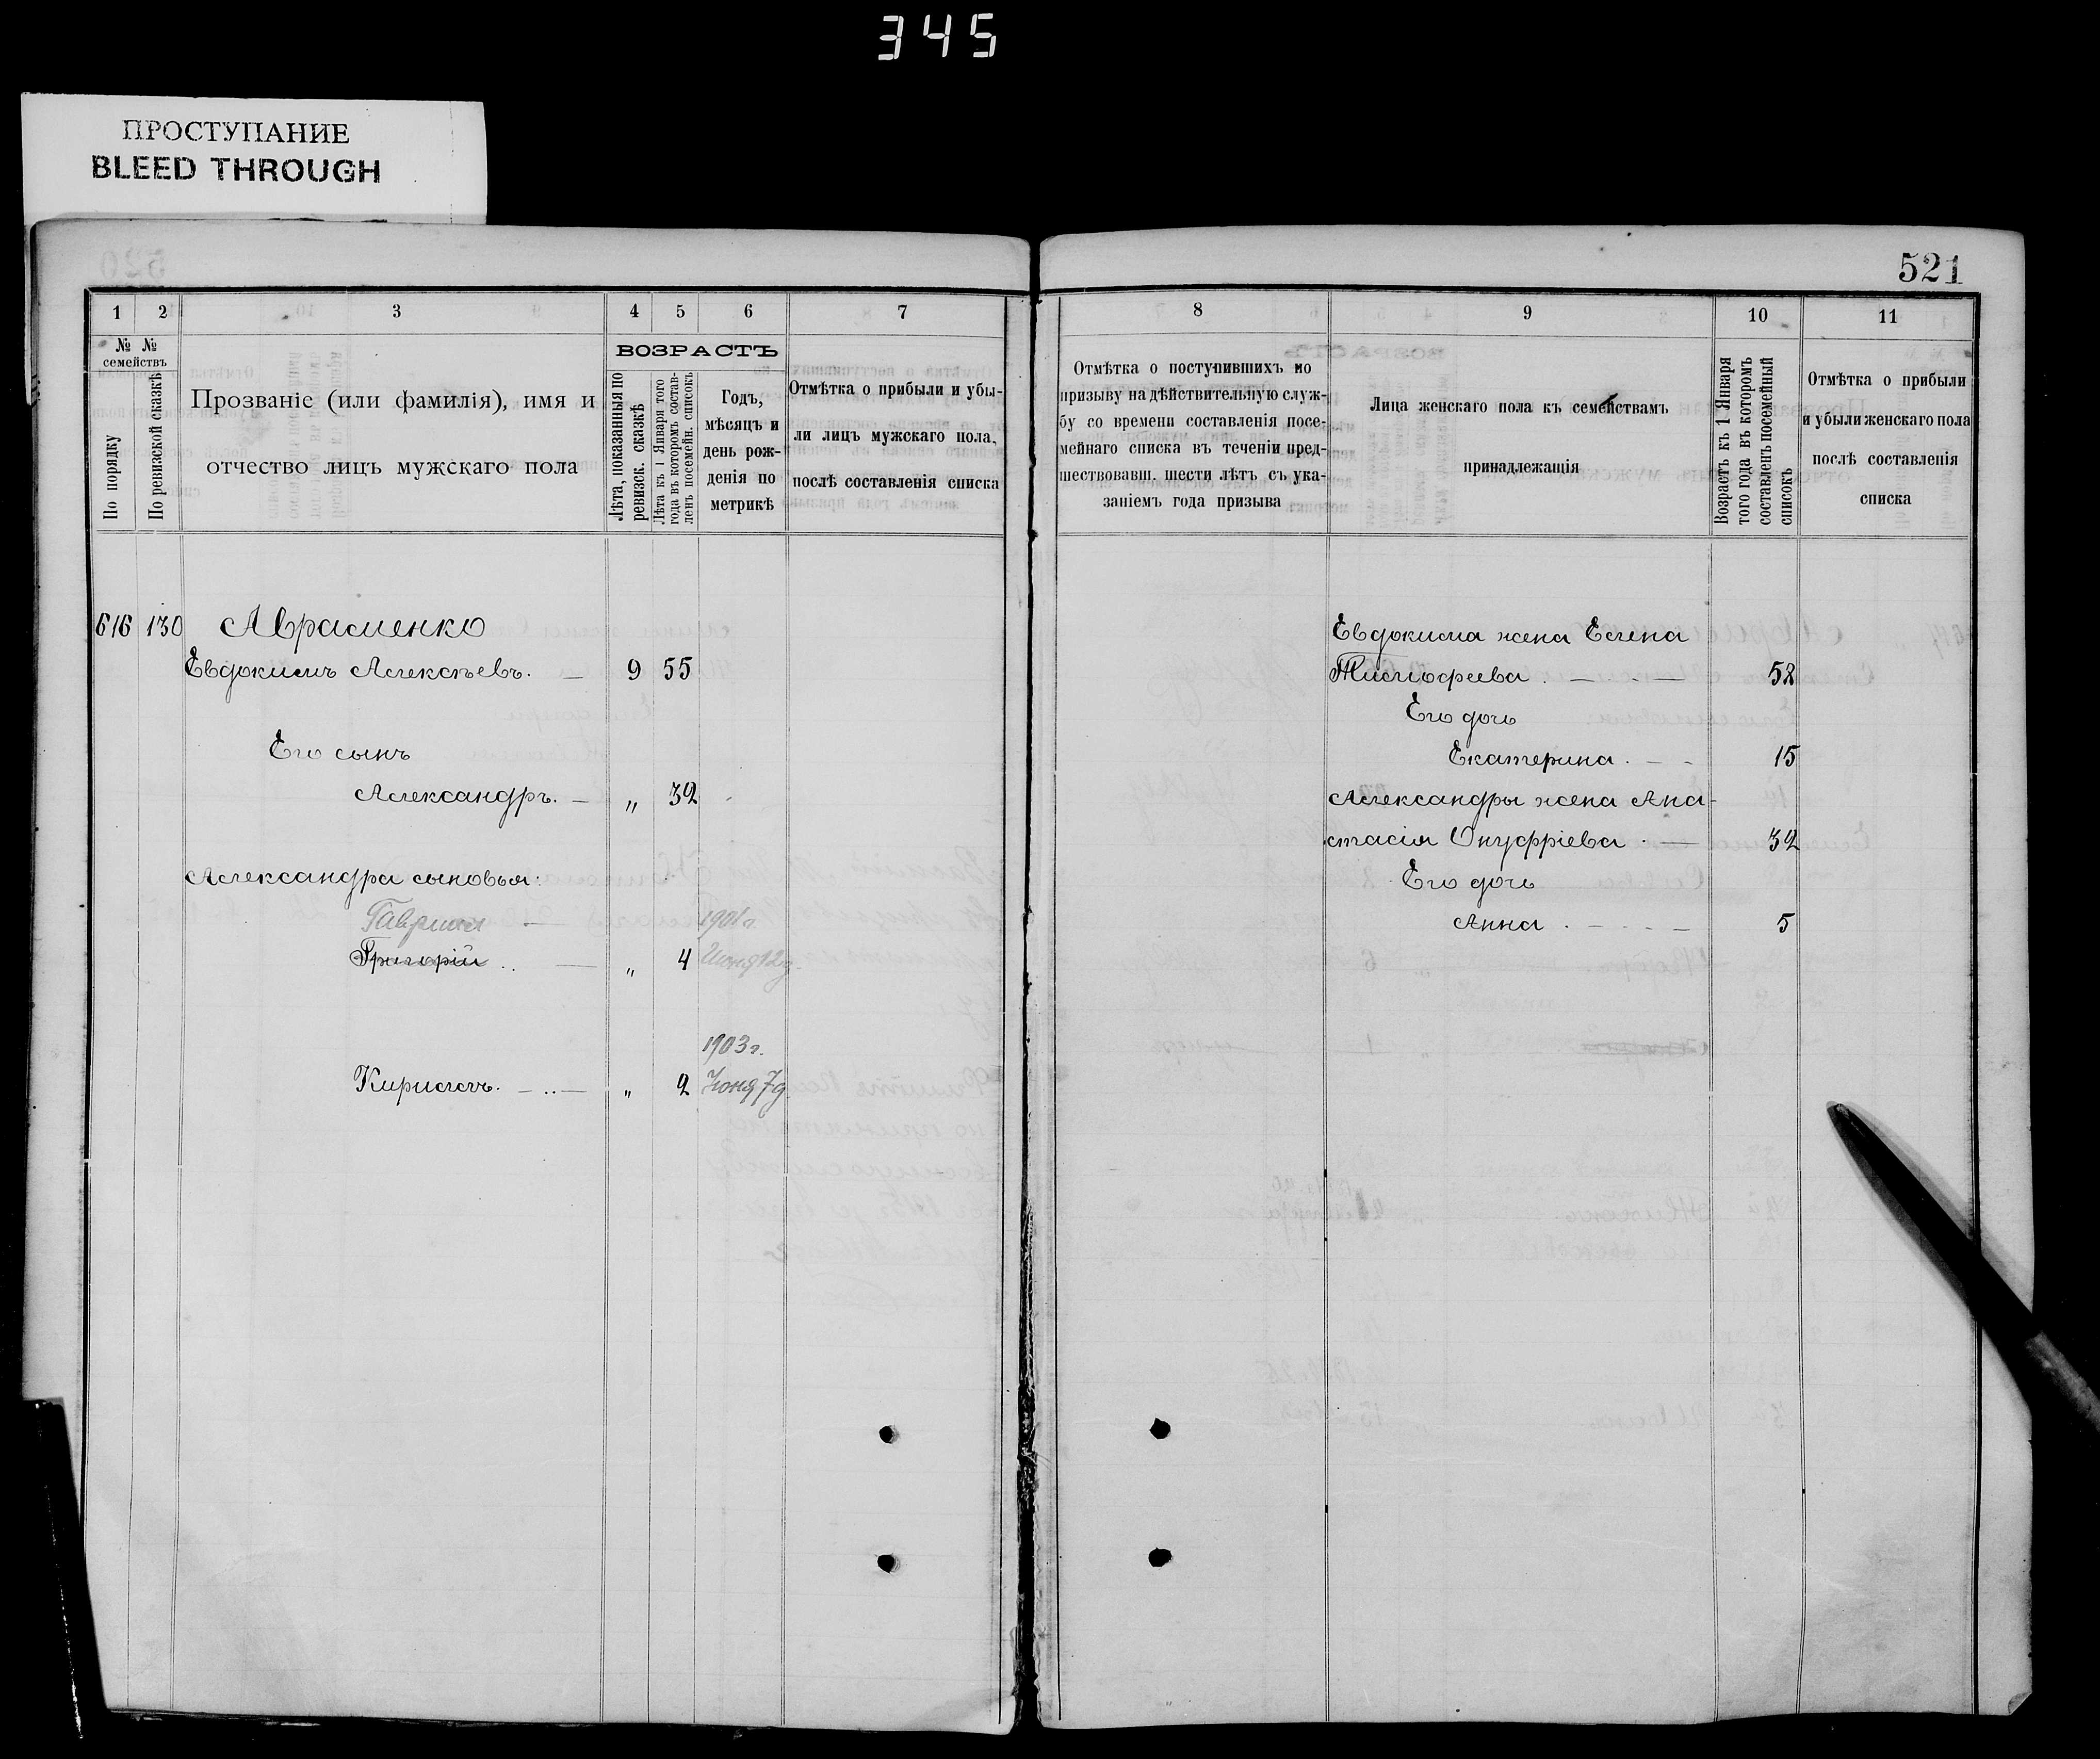 345
ПРОСТУПАНИЕ
BLEED THROUGH
521
1 2 3 4 5 6 7
№ № семействъ
По порядку
По ревизской сказкѣ
Прозваніе (или фамилія), имя и
отчество лицъ мужскаго пола
ВОЗРАСТЪ
Лѣта, показанныя по
ревизск. сказкѣ
Лѣта къ 1 Января того
года въ которомъ состав-
ленъ посемейн. списокъ
Годъ,
мѣсяцъ и
день рож-
денія по
метрикѣ
Отмѣтка о прибыли и убы-
ли лицъ мужскаго пола,
послѣ составленія списка
616 130 Авраменко
Евдокимъ Алексѣевъ. — 9 55
Его сынъ
Александръ. — „ 32
Александра сыновья:
Гаврилъ — 1901 г.
Григорій .. — „ 4 Июня 12 д.
1903 г.
Кириллъ. — .. — „ 2 Іюня 7 д.
8 9 10 11
Отмѣтка о поступившихъ по
призыву на дѣйствительную служ-
бу со времени составленія посе-
мейнаго списка въ теченіи пред-
шествовавш. шести лѣтъ съ ука-
заніемъ года призыва
Лица женскаго пола къ семействамъ
принадлежащія
Возрастъ къ 1 Января
того года въ которомъ
составленъ посемейный
списокъ
Отмѣтка о прибыли
и убыли женскаго пола
послѣ составленія
списка
Евдокима жена Елена
Тимофеева . — - — 52
Его дочь
Екатерина . — - 15
Александры жена Ана-
стасія Онуфріева . — 32
Его дочь
Анна . - - . - 5